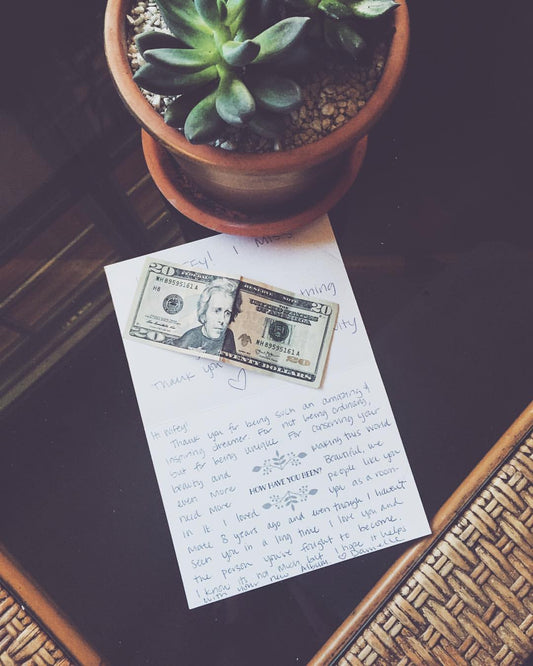 EY! I MISS
hing
ity
Thank you
FEDERAL RESERVE NOTE
20 20
MH 89595161 A
H8
MH 89595161 A
20 20
TWENTY DOLLARS
Hi wifey!
Thank you for being such an amazing &
inspiring dreamer. For not being ordinary,
but for being unique. For conserving your
beauty and making this world
even more Beautiful, we
HOW HAVE YOU BEEN?
need more people like you
in it. I loved you as a room-
mate 8 years ago and even though I haven't
seen you in a long time I love you and
the person you've fought to become.
I know it's not much but I hope it helps
with your new Album ♡ Danielle